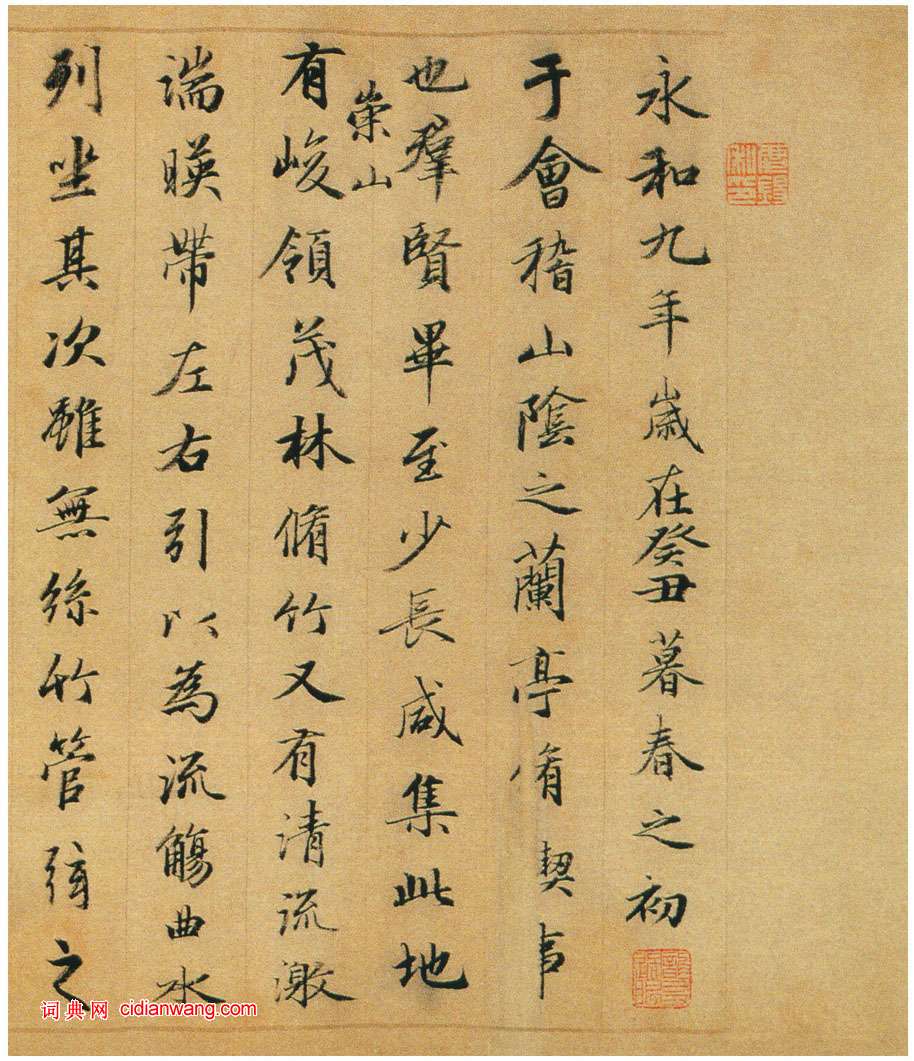 永和九年歲在癸丑暮春之初
于會稽山陰之蘭亭脩契事
也羣賢畢至少長咸集此地
有崇山峻領茂林脩竹又有清流激
湍暎帶左右引以為流觴曲水
列坐其次雖無絲竹管弦之
词典网 cidianwang.com